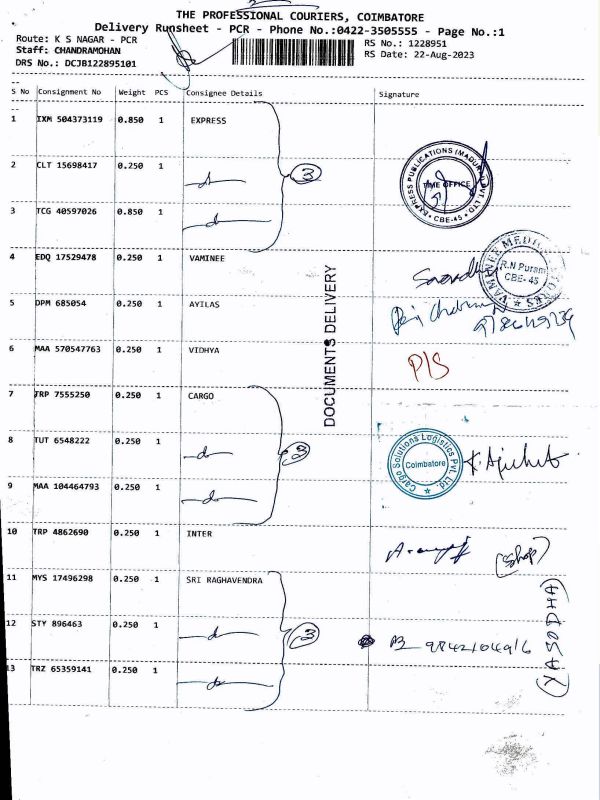 THE PROFESSIONAL COURIERS, COIMBATORE
Delivery Runsheet - PCR - Phone No.:0422-3505555 - Page No.:1
Route: K S NAGAR - PCR
RS No.: 1228951
Staff: CHANDRAMOHAN
RS Date: 22-Aug-2023
DRS No.: DCJB122895101
S No Consignment No Weight PCS Consignee Details Signature
1 IXM 504373119 0.850 1 EXPRESS
2 CLT 15698417 0.250 1
3
EXPRESS PUBLICATIONS (MADURAI) PVT LTD
TIME OFFICE
CBE-45
3 TCG 40597026 0.850 1
4 EDQ 17529478 0.250 1 VAMINEE
VAMINEE MEDICAL STORES
R.N Puram
CBE- 45
DOCUMENTS DELIVERY
5 DPM 685054 0.250 1 AYILAS
6 MAA 570547763 0.250 1 VIDHYA
P/S
7 TRP 7555250 0.250 1 CARGO
8 TUT 6548222 0.250 1
3
Cargo Solutions Logistics Pvt. Ltd.
Coimbatore
9 MAA 104464793 0.250 1
10 TRP 4862690 0.250 1 INTER
(Shop)
11 MYS 17496298 0.250 1 SRI RAGHAVENDRA
12 STY 896463 0.250 1
3
9842104916
(YASODHA)
13 TRZ 65359141 0.250 1